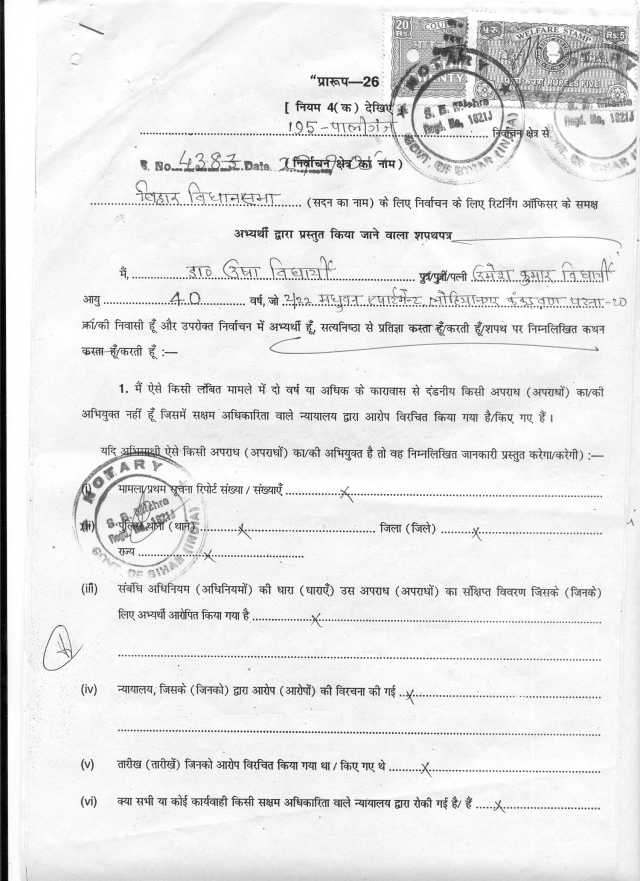 20
Rs.
COU
WELFARE STAMP
५ रु.
Rs.5
"प्रारूप—26
[ नियम 4(क) देखिए
195-पालीगंज
निर्वाचन क्षेत्र से
NOTARY
S. B. Mishra
Regd. No. 1621J
GOVT. OF BIHAR (INDIA)
S. No. 4383 Date
(निर्वाचन क्षेत्र का नाम)
बिहार विधानसभा (सदन का नाम) के लिए निर्वाचन के लिए रिटर्निंग ऑफिसर के समक्ष
अभ्यर्थी द्वारा प्रस्तुत किया जाने वाला शपथपत्र
मैं, डा० उषा विद्यार्थी पुत्र/पुत्री/पत्नी उमेश कुमार विद्यार्थी
आयु 40 वर्ष, जो 2/22 मधुवन एपार्टमेन्ट लोहियानगर कंकड़बाग पटना-20
का/की निवासी हूँ और उपरोक्त निर्वाचन में अभ्यर्थी हूँ, सत्यनिष्ठा से प्रतिज्ञा करता हूँ/करती हूँ/शपथ पर निम्नलिखित कथन
करता हूँ/करती हूँ :—
1. मैं ऐसे किसी लंबित मामले में दो वर्ष या अधिक के कारावास से दंडनीय किसी अपराध (अपराधों) का/की
अभियुक्त नहीं हूँ जिसमें सक्षम अधिकारिता वाले न्यायालय द्वारा आरोप विरचित किया गया है/किए गए हैं ।
यदि अभिसाक्षी ऐसे किसी अपराध (अपराधों) का/की अभियुक्त है तो वह निम्नलिखित जानकारी प्रस्तुत करेगा/करेगी) :—
NOTARY
S. B. Mishra
Regd. No. 1621J
GOVT. OF BIHAR (INDIA)
(i) मामला/प्रथम सूचना रिपोर्ट संख्या / संख्याएँ x
(ii) पुलिस थाना (थाने) x जिला (जिले) x
राज्य x
(iii) संबंधि अधिनियम (अधिनियमों) की धारा (धाराएँ) उस अपराध (अपराधों) का संक्षिप्त विवरण जिसके (जिनके)
लिए अभ्यर्थी आरोपित किया गया है x
(iv) न्यायालय, जिसके (जिनको) द्वारा आरोप (आरोपों) की विरचना की गई x
(v) तारीख (तारीखें) जिनको आरोप विरचित किया गया था / किए गए थे x
(vi) क्या सभी या कोई कार्यवाही किसी सक्षम अधिकारिता वाले न्यायालय द्वारा रोकी गई है/ हैं x